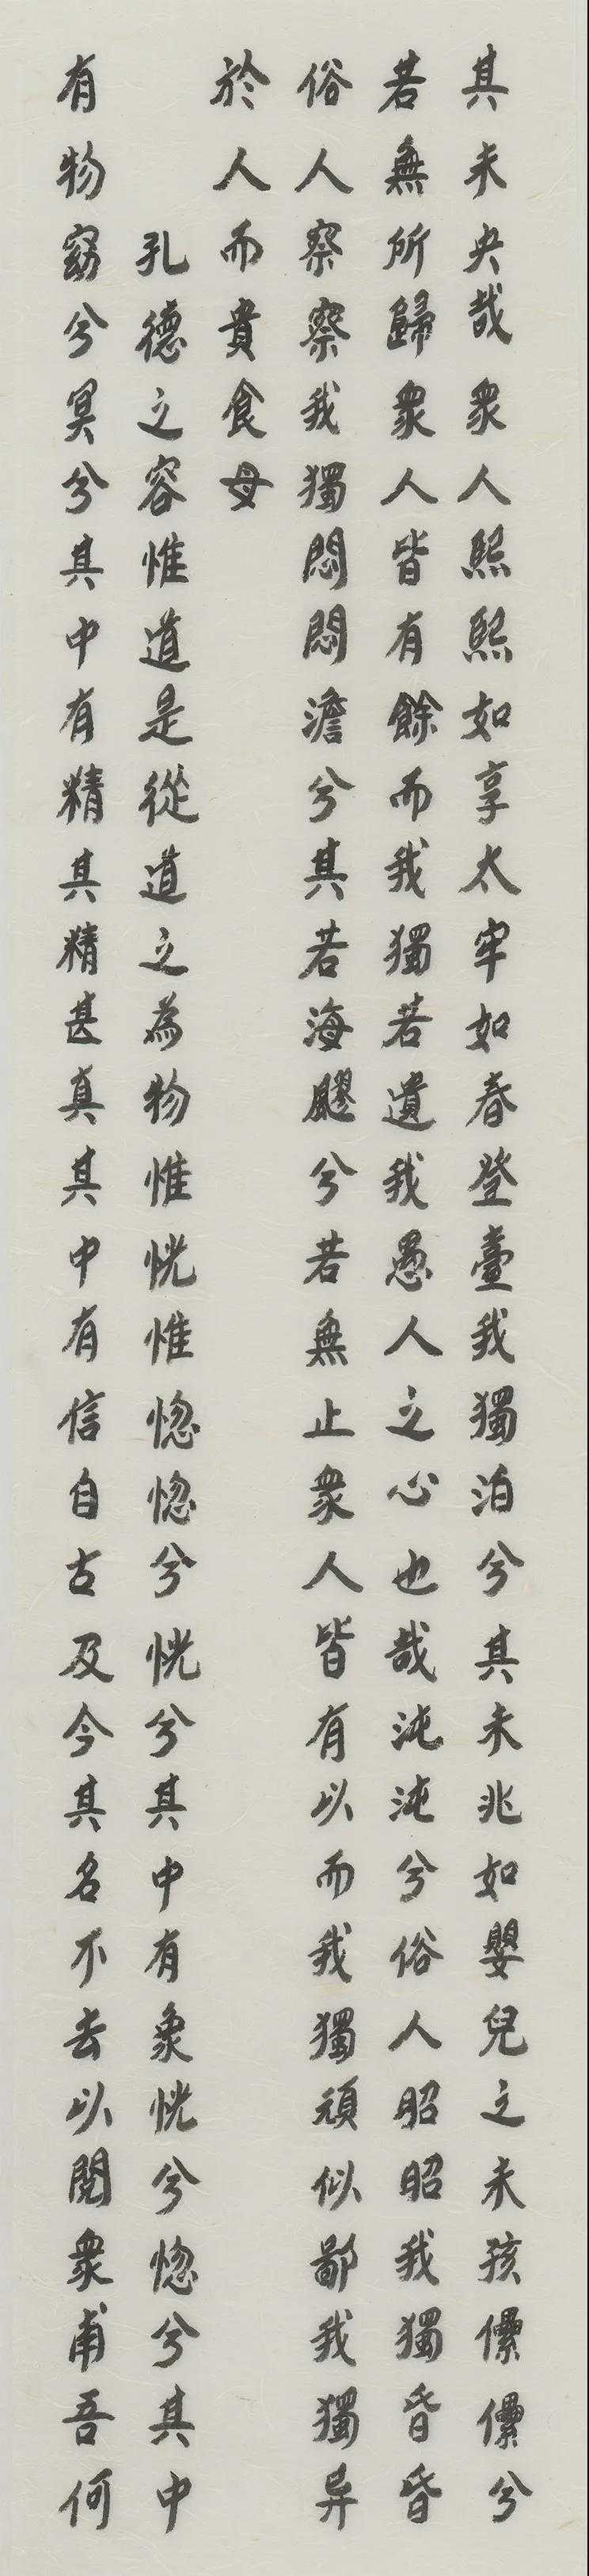 其未央哉衆人熙熙如享太牢如春登臺我獨泊兮其未兆如嬰兒之未孩儽儽兮
若無所歸衆人皆有餘而我獨若遺我愚人之心也哉沌沌兮俗人昭昭我獨昏昏
俗人察察我獨悶悶澹兮其若海飂兮若無止衆人皆有以而我獨頑似鄙我獨异
於人而貴食母
孔德之容惟道是從道之為物惟恍惟惚惚兮恍兮其中有象恍兮惚兮其中
有物窈兮冥兮其中有精其精甚真其中有信自古及今其名不去以閱衆甫吾何